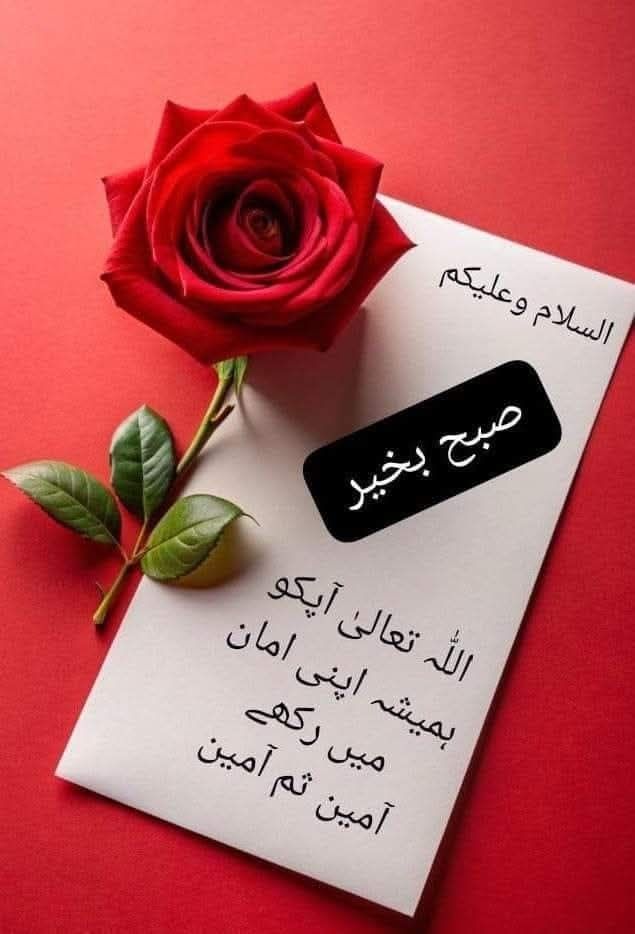 السلام وعلیکم
صبح بخیر
اللہ تعالیٰ آپکو
ہمیشہ اپنی امان
میں رکھے
آمین ثم آمین